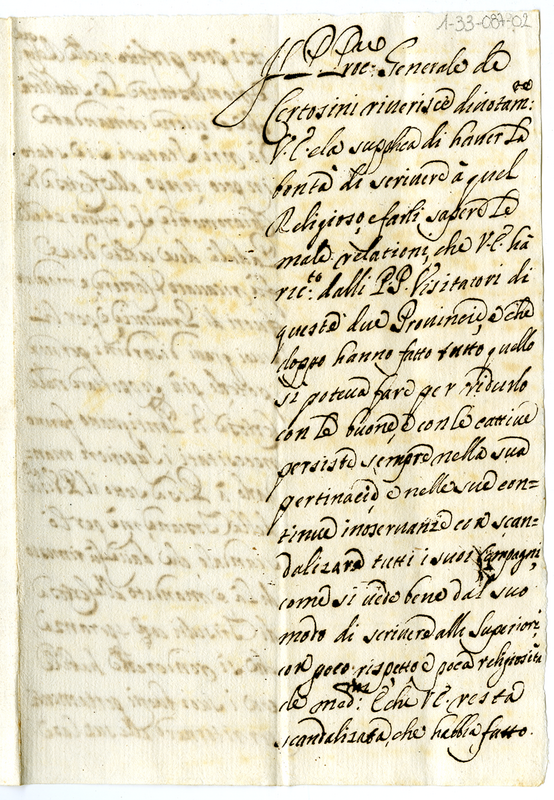 1-33-087-02
Il P. Proc: Generale de
Certosini riverisce divotam:te
V. E. e la supplica di haver la
bontà di scrivere à quel
Religioso, e farli sapere le
male relationi, che V. E. hà
ric:to dalli P.P. Visitatori di
queste due Provincie, e che
doppo hanno fatto tutto quello
si poteva fare per ridurlo
con le buone, e con le cattive
persiste sempre nella sua
pertinacia, e nelle sue con=
tinue inoservanze con scan=
dalizare tutti i suoi Compagni,
come si vede bene dal suo
modo di scrivere alli Superiori,
con poco rispetto e poca religiosità
de med:mi E che V. E. resta
scandalizata, che habbia fatto.